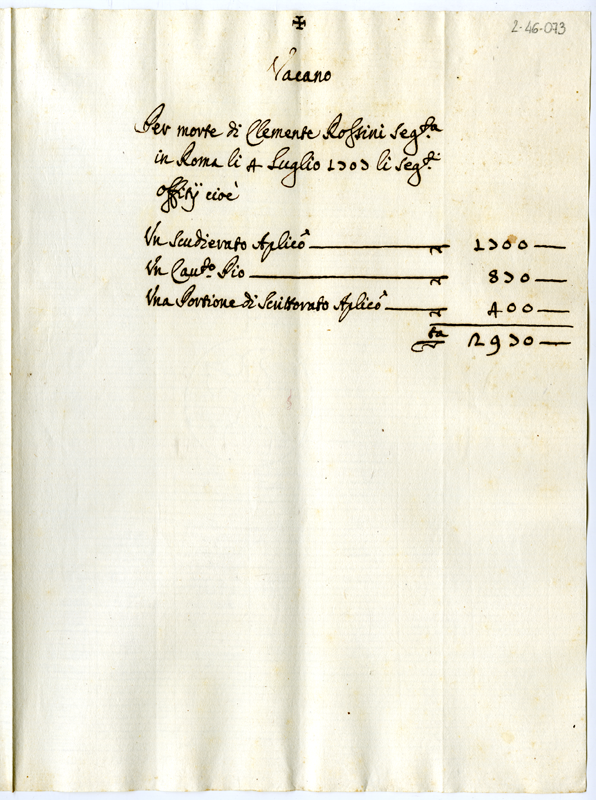 ✠
2-46-073
Vacano
Per morte di Clemente Rossini Seg.ta
in Roma li 4 Luglio 1707 li Seg.ti
offitÿ cioè
Un Scudierato Aplicõ — 1700 —
Un Cau.to Pio — 870 —
Una Portione di Scrittorato Aplicõ — 400 —
2970 —